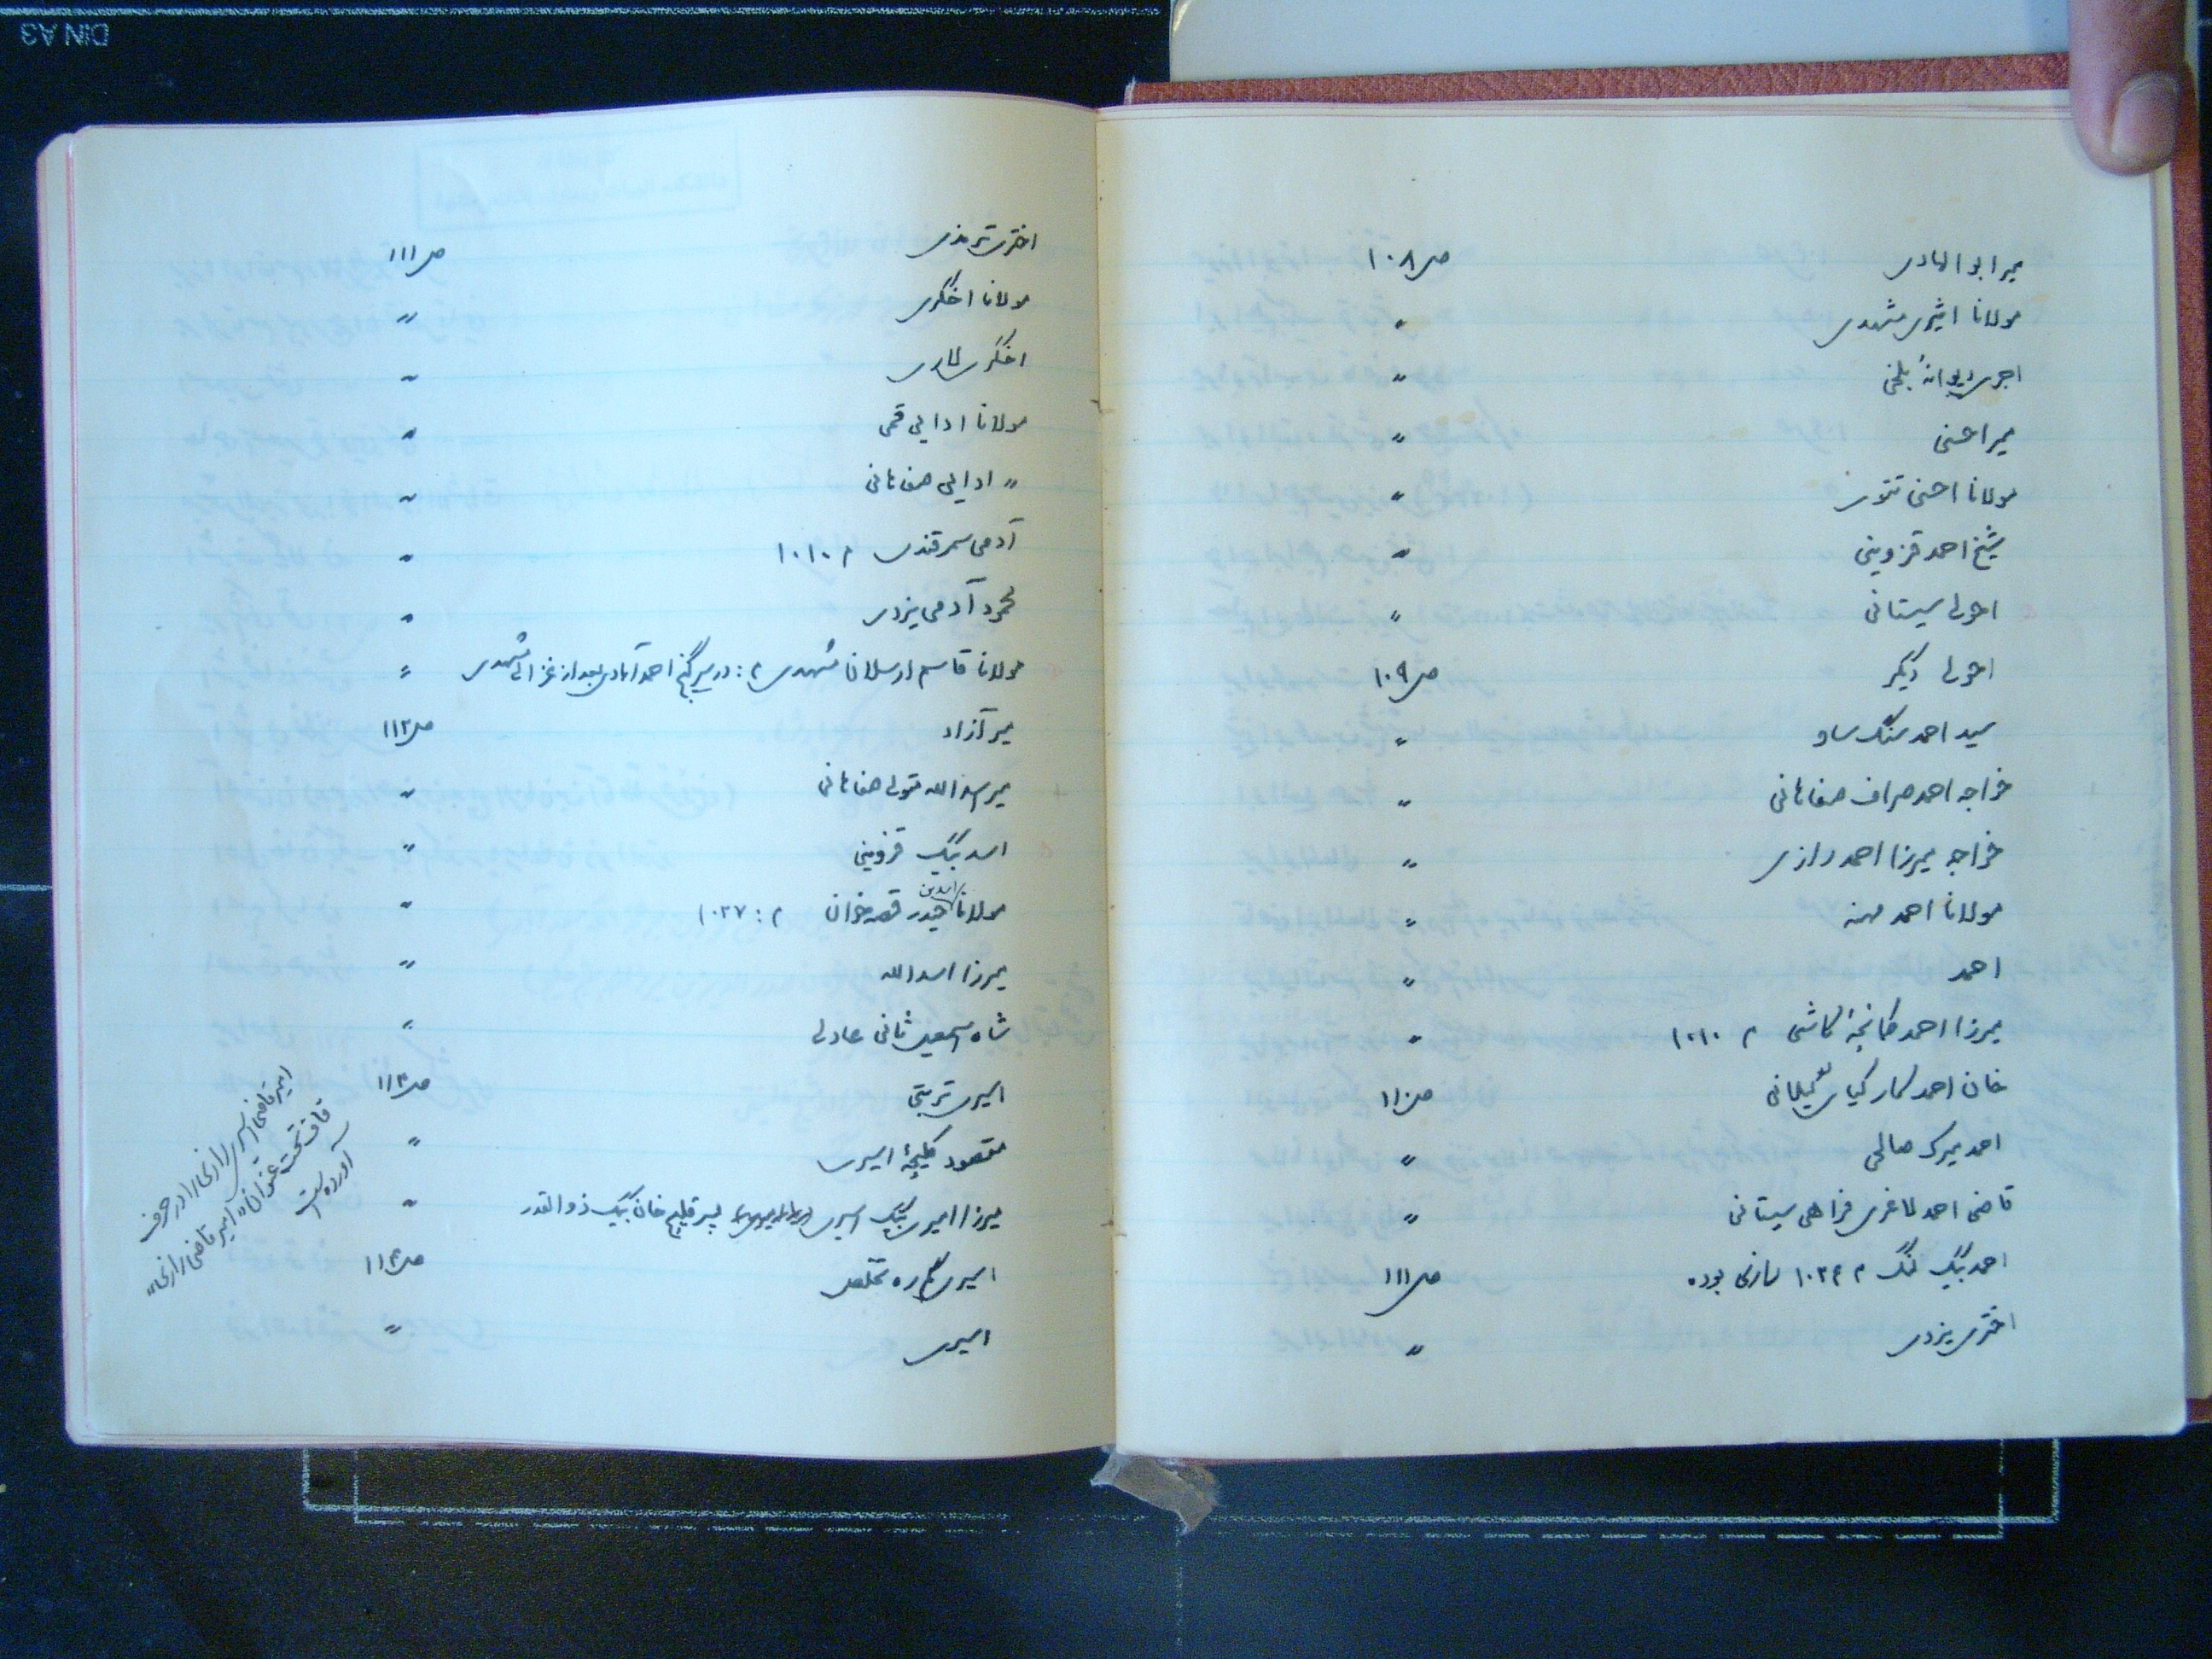 میر ابو الهادی ص ۱۰۸
مولانا اثیری مشهدی "
اجری دیوانهٔ بلخی "
میر احسنی "
مولانا احسنی تتوی "
شیخ احمد قزوینی "
احولی سیستانی "
احولی دیگر ص ۱۰۹
سید احمد سنگ ساو "
خواجه احمد صراف صفاهانی "
خواجه میرزا احمد رازی "
مولانا احمد مهنه "
احمد "
میرزا احمد کمانچهٔ کاشی م ۱۰۱۰ "
خان احمد کیای گیلانی ص ۱۱۰
احمد میرک صالحی "
قاضی احمد لاغری فراهی سیستانی "
احمد بیگ لنگ م ۱۰۲۴ بوده ص ۱۱۱
اختری یزدی "
اختری ترمذی ص ۱۱۱
مولانا اخگری "
اخگری لاری "
مولانا ادایی قمی "
" ادایی صفاهانی "
آدمی سمرقندی م ۱۰۱۰ "
محمود آدمی یزدی "
مولانا قاسم ارسلان مشهدی م : در سرگنج احمدآبادی بعد از غزالی مشهدی "
میر آزاد ص ۱۱۲
میر اسدالله متولی صفاهانی "
اسد بیگ قزوینی "
مولانا اسد بن حیدر قصه خوان م : ۱۰۲۷ "
میرزا اسدالله "
شاه اسمعیل ثانی عادلی "
اسیری تربتی ص ۱۱۳
مقصود کلیچهٔ اسیری "
میرزا امیری بیگ اسیری پسر قلیچ خان بیگ ذوالقدر "
اسیری گم ره تخلص ص ۱۱۴
اسیری "
امیر قاضی اسیری رازی را در حرف
قاف تحت عنوان «امیر قاضی رازی»
آورده است
DIN A3